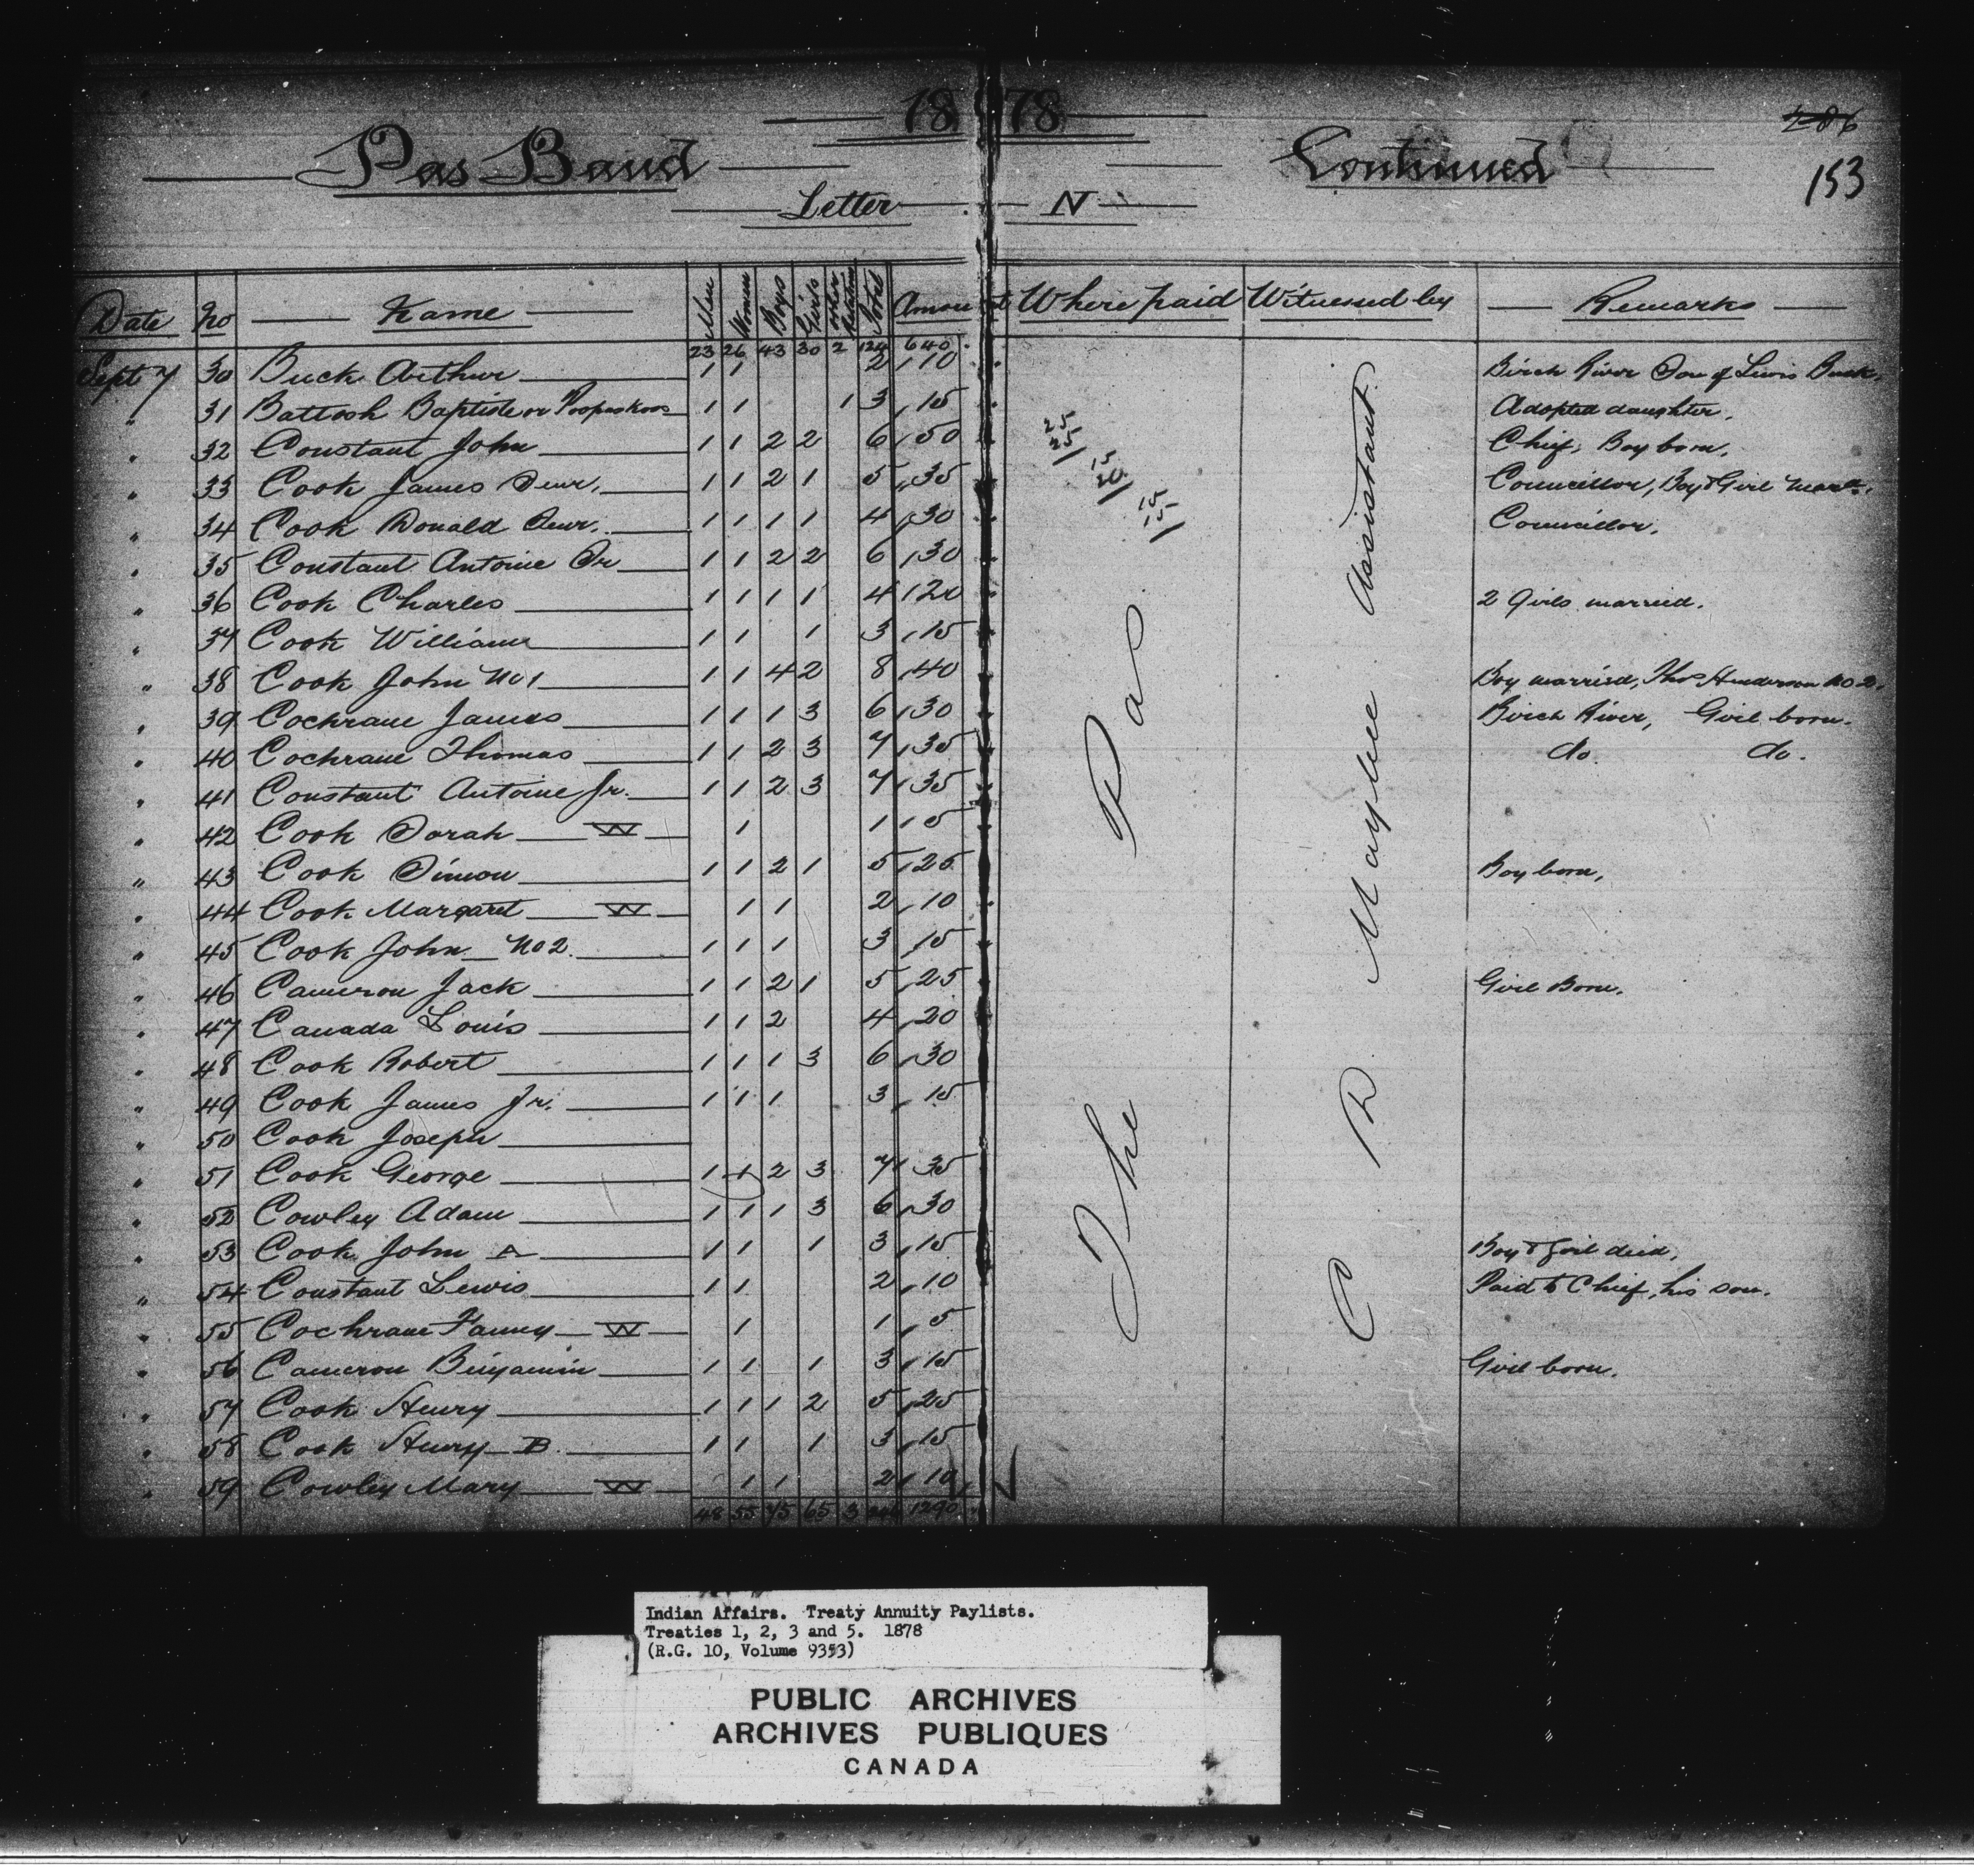 1878
286
Pas Band Continued
153
Letter N
Date No Name Men Women Boys Girls other Relatives Total Amount Where paid Witnessed by Remarks
23 26 43 30 2 124 640
Sept 7 30 Buck Arthur 1 1 2 10 Birch River Son of Lewis Buck.
" 31 Battosh Baptiste or 1 1 1 3 15 Adopted daughter.
" 32 Constant John 1 1 2 2 6 50 Chief, Boy born.
" 33 Cook James Senr. 1 1 2 1 5 35 Councillor, Boy & Girl Mard.
" 34 Cook Donald Senr. 1 1 1 1 4 30 Councillor.
" 35 Constant Antoine Sr 1 1 2 2 6 30
" 36 Cook Charles 1 1 1 1 4 20 2 Girls married.
" 37 Cook William 1 1 1 3 15
" 38 Cook John No 1 1 1 4 2 8 40 Boy married, Thos Henderson No 2.
" 39 Cochrane James 1 1 1 3 6 30 Birch River, Girl born.
" 40 Cochrane Thomas 1 1 2 3 7 35 do. do.
" 41 Constant Antoine Jr. 1 1 2 3 7 35
" 42 Cook Sarah W 1 1 5
" 43 Cook Simon 1 1 2 1 5 25 Boy born,
" 44 Cook Margaret W 1 1 2 10
" 45 Cook John No 2. 1 1 1 3 15
" 46 Cameron Jack 1 1 2 1 5 25 Girl Born.
" 47 Canada Louis 1 1 2 4 20
" 48 Cook Robert 1 1 1 3 6 30
" 49 Cook James Jr. 1 1 1 3 15
" 50 Cook Joseph
" 51 Cook George 1 1 2 3 7 35
" 52 Cowley Adam 1 1 1 3 6 30
" 53 Cook John A 1 1 1 3 15 Boy & Girl died,
" 54 Constant Lewis 1 1 2 10 Paid to Chief, his son.
" 55 Cochrane Fanny W 1 1 5
" 56 Cameron Binjamin 1 1 1 3 15 Girl born.
" 57 Cook Henry 1 1 1 2 5 25
" 58 Cook Henry B. 1 1 1 3 15
" 59 Cowley Mary W 1 1 2 10
48 55 75 65 3 1290
25
25
15
20
15
15
The Pas
C R Maybee Assistant
Indian Affairs. Treaty Annuity Paylists.
Treaties 1, 2, 3 and 5. 1878
(R.G. 10, Volume 9353)
PUBLIC ARCHIVES
ARCHIVES PUBLIQUES
CANADA